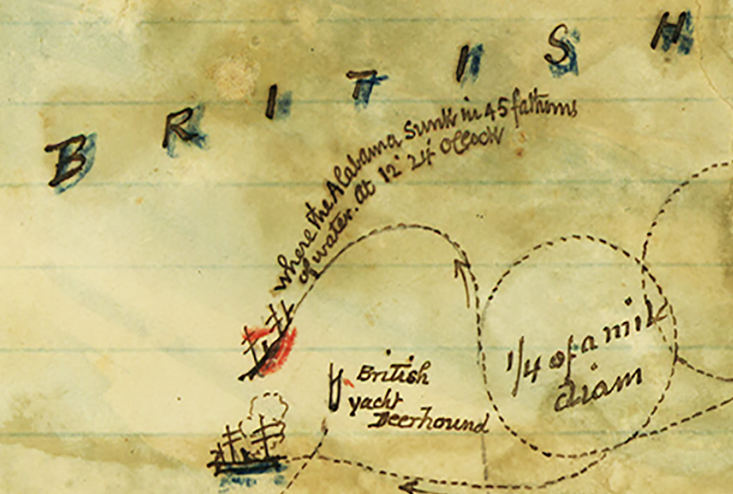 BRITISH
where the Alabama sunk in 45 fathoms
of water. At 12' 24 Oclock
1/4 of a mile
diam
British
yacht
Deerhound